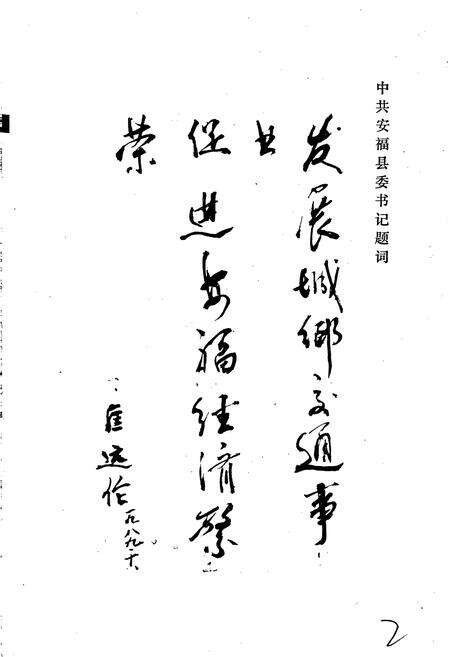 中共安福县委书记题词
发展城乡交通事
业
促进安福经济繁
荣
匡远伦
一九八九、十、
2